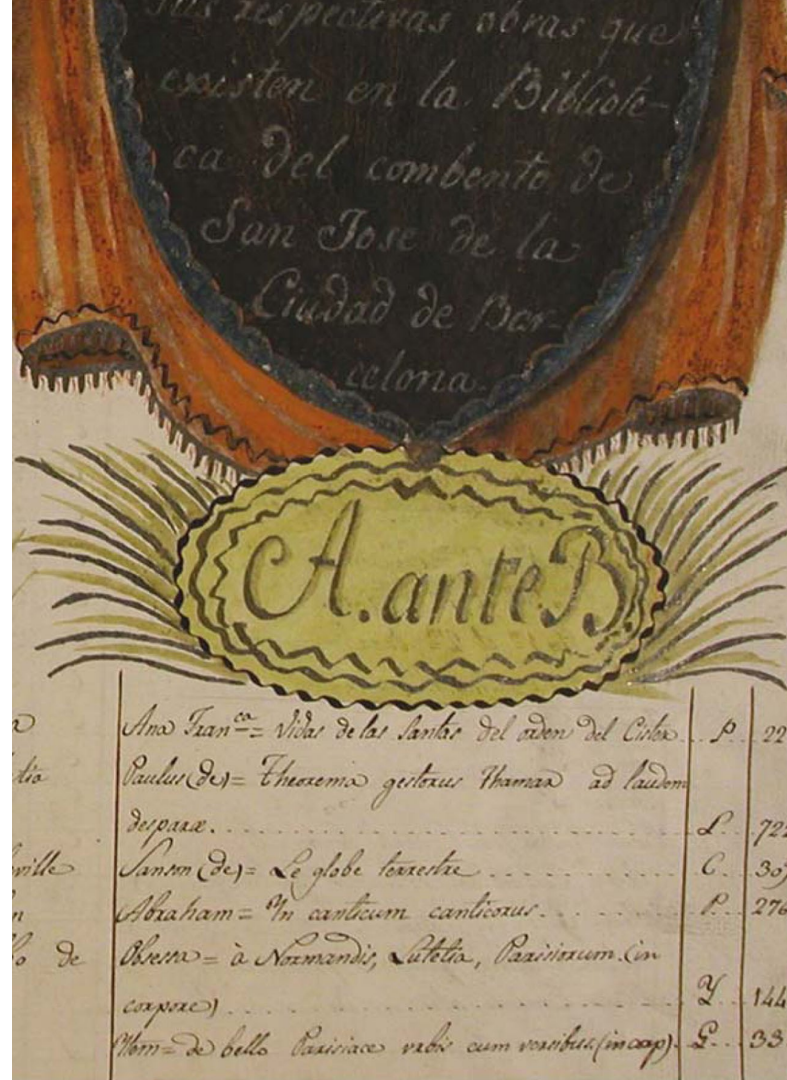 sus respectivas obras que
existen en la Bibliote-
ca del combento de
San Jose de la
Ciudad de Bar-
celona.
A. ante B.
Ana Fran.ca = Vidas de las Santas del orden del Cister P 22
Paulus (de) = Theorema gestorus Thamar ad laudem
deiparæ. L 72
ville Sanson (de) = Le globe terrestre C 30
Abraham = In canticum canticorus. P. 276
de Obsessa = à Normandis, Lutetia, Parisiorum. (in
corpore) Y 144
Idem = de bello Parisiace urbis cum versibus. (in corp) G. 33